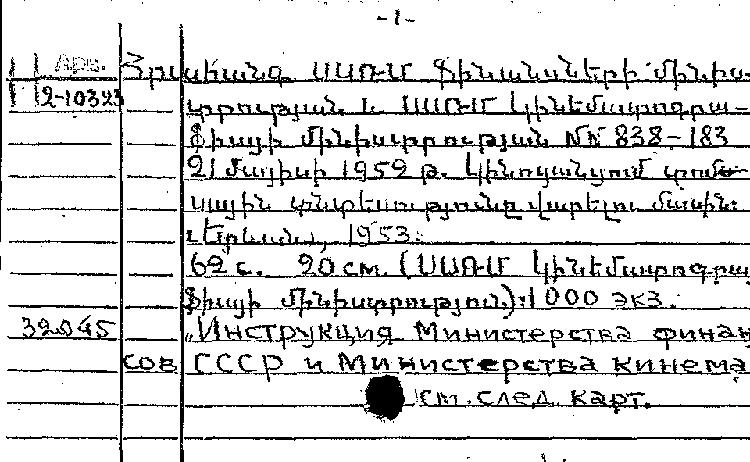 -1-
Հրահանգ ՍՍՌՄ Ֆինանսների մինիս-
2-10323 տրության և ՍՍՌՄ Կինեմատոգրա-
ֆիայի մինիստրության NN 838-183
21 մայիսի 1952 թ. կինոցանցում տոմ-
սային տնտեսությունը վարելու մասին:
Երևան, 1953:
62 с. 20 см. (ՍՍՌՄ Կինեմատոգրա
ֆիայի մինիստրություն): 1000 экз.
32045 „Инструкция Министерства финан
сов СССР и Министерства кинема
см. след. карт.